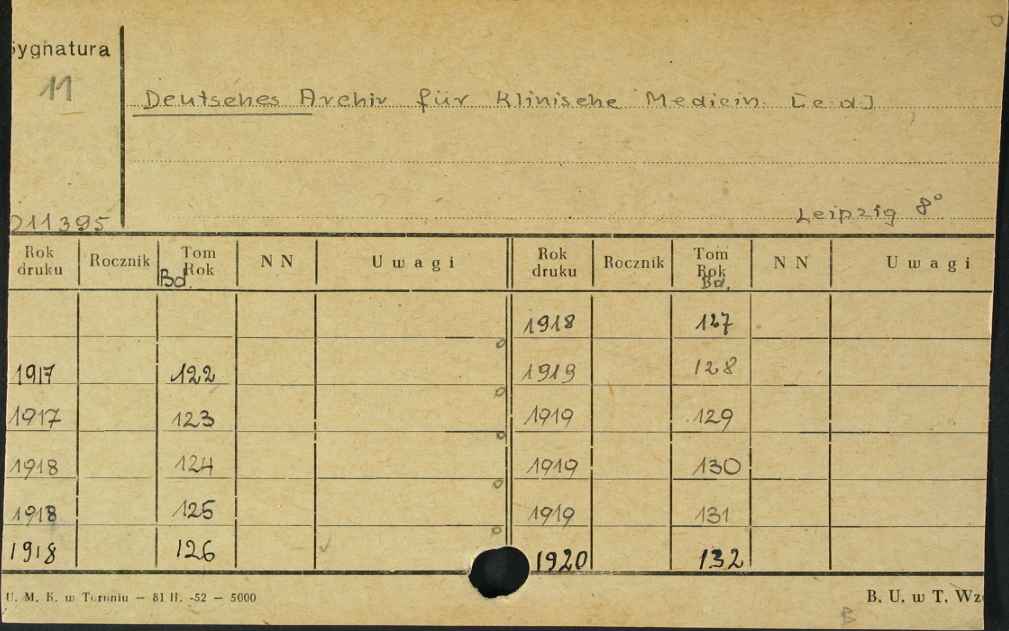 Sygnatura
11
Deutsches Archiv für Klinische Medicin. [e.d]
011395
Leipzig 8°
Rok druku Rocznik Tom Rok Bd. NN Uwagi Rok druku Rocznik Tom Rok Bd. NN Uwagi
1918 127
1917 122 1919 128
1917 123 1919 129
1918 124 1919 130
1918 125 1919 131
1918 126 1920 132
U. M. K. w Toruniu — 81 II. -52 — 5000
B. U. w T.
B